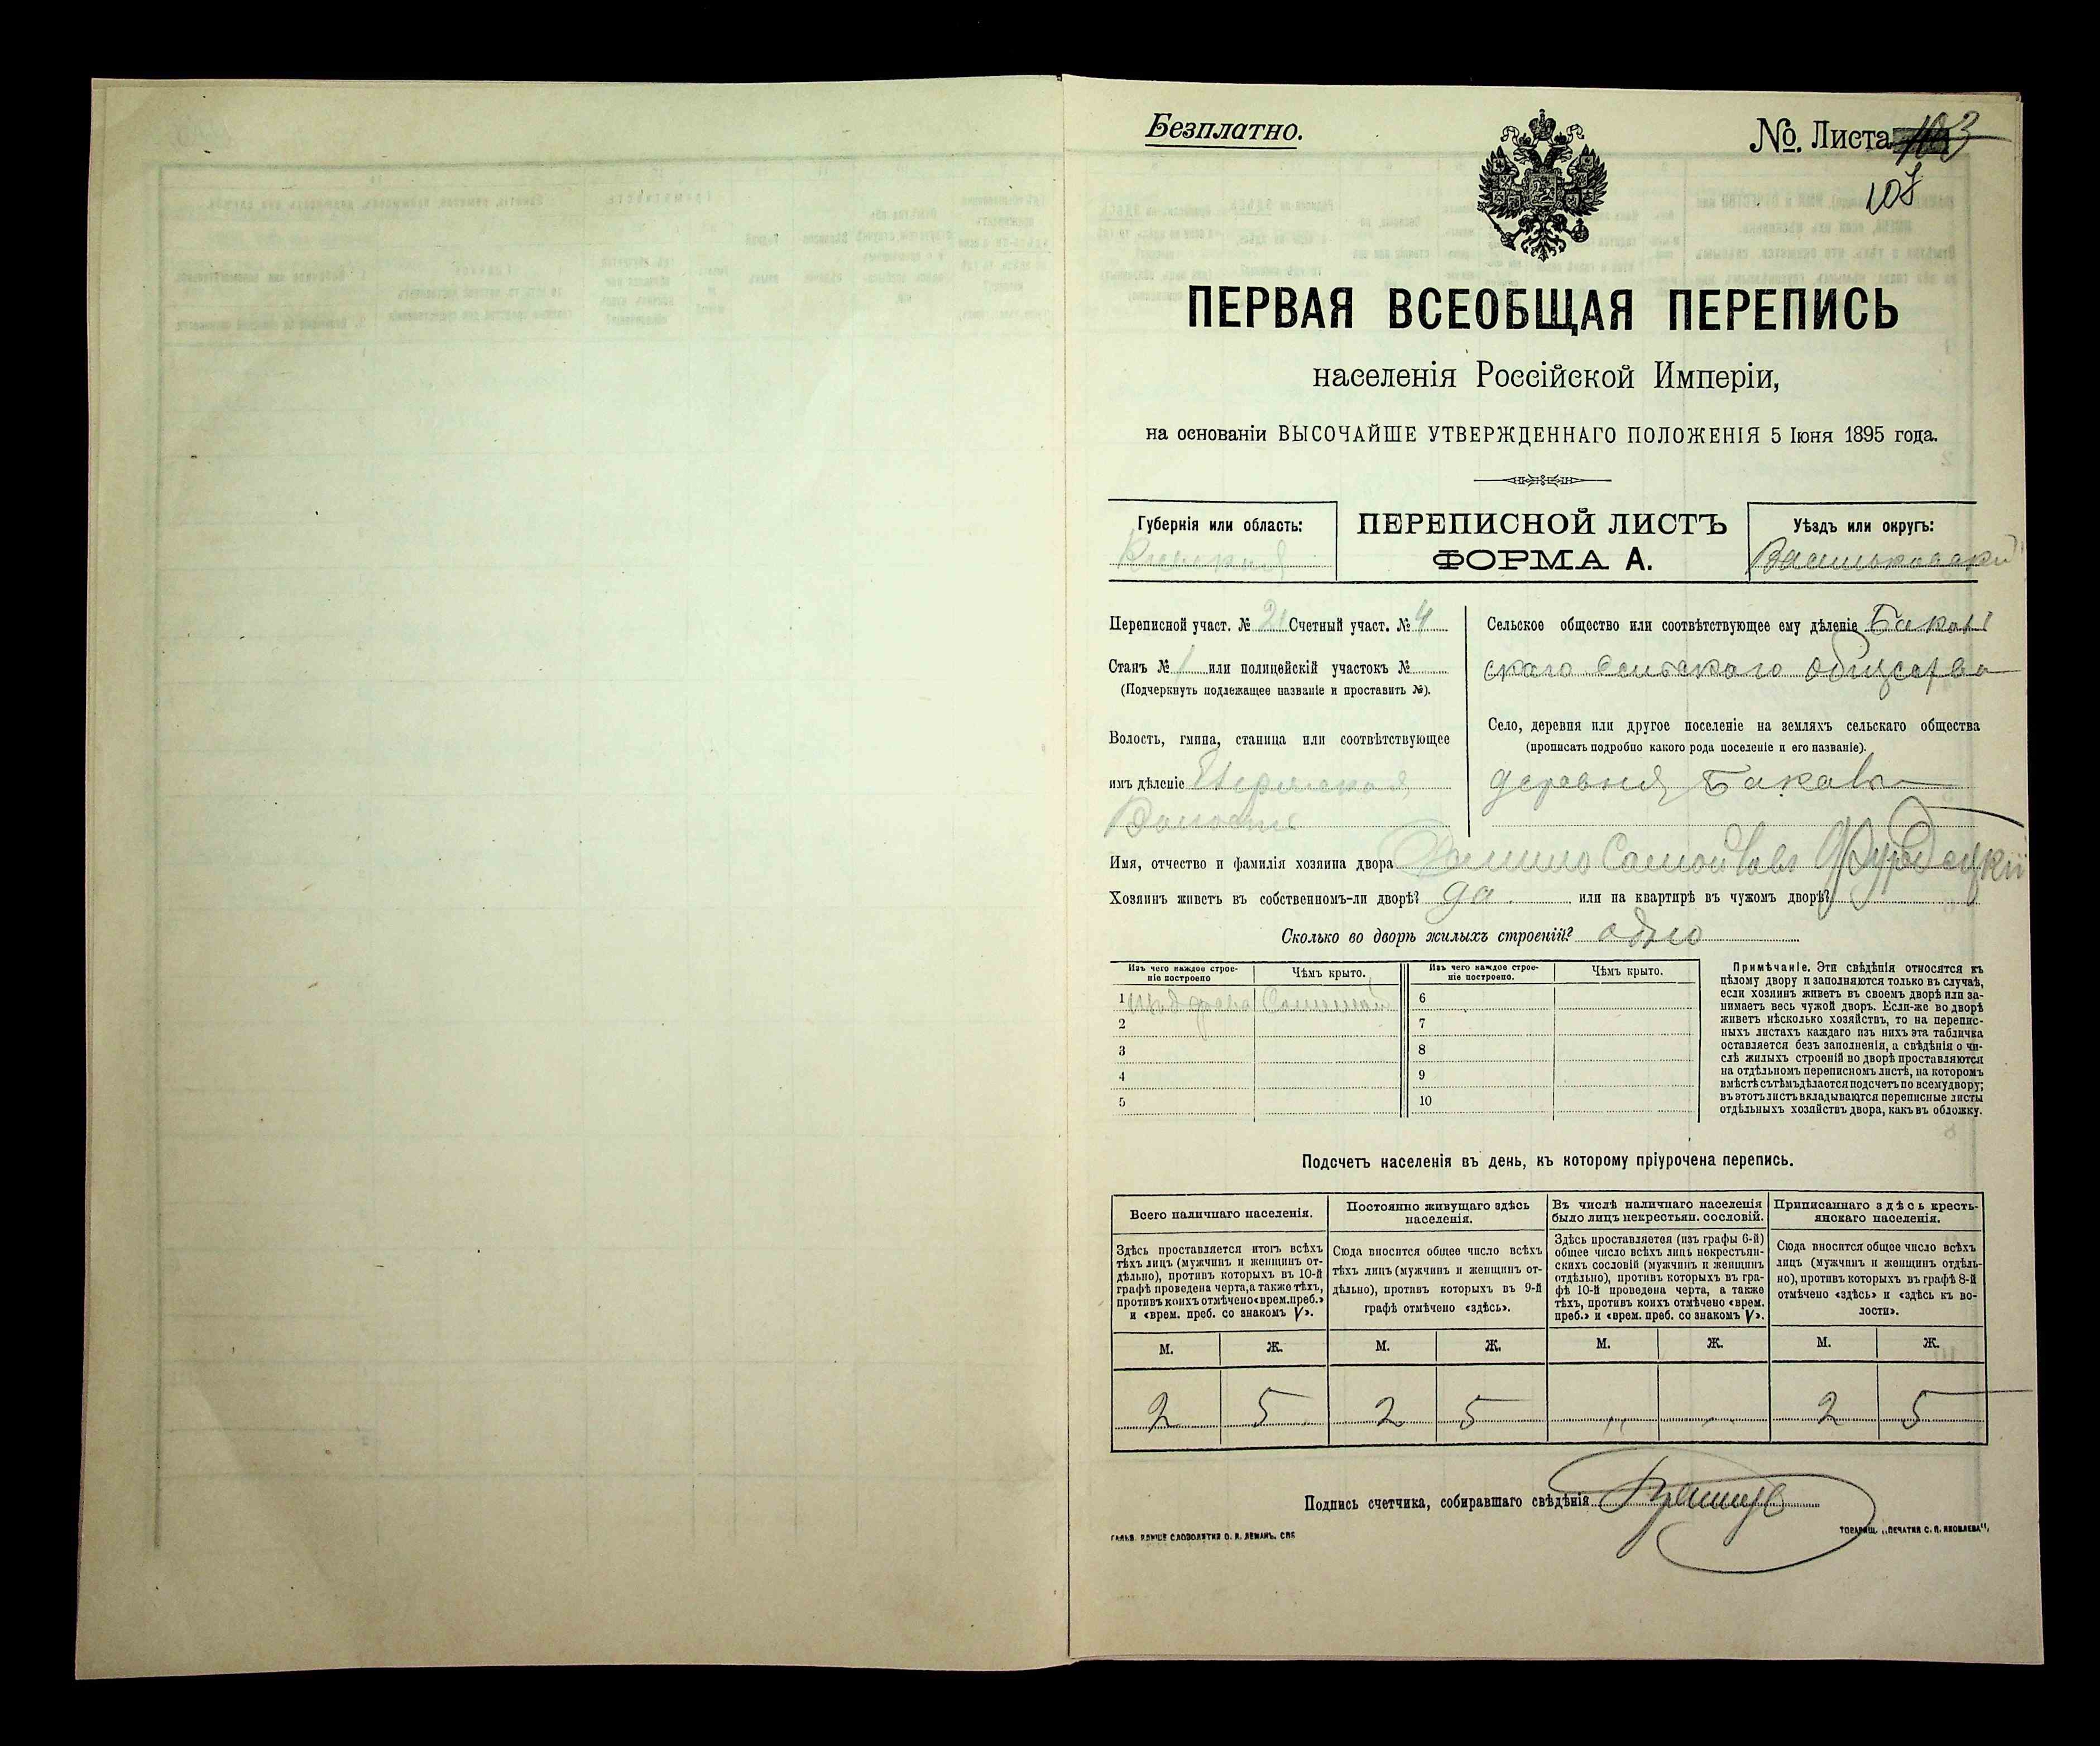 Безплатно.
№. Листа 103
108
ПЕРВАЯ ВСЕОБЩАЯ ПЕРЕПИСЬ
населенія Россійской Имперіи,
на основаніи ВЫСОЧАЙШЕ УТВЕРЖДЕННАГО ПОЛОЖЕНІЯ 5 Іюня 1895 года.
Губернія или область:
Кіевская
ПЕРЕПИСНОЙ ЛИСТЪ
ФОРМА А.
Уѣздъ или округъ:
Васильковскій
Переписной участ. № 21 Счетный участ. № 4
Станъ № 1 или полицейскій участокъ №
(Подчеркнуть подлежащее названіе и проставить №).
Волость, гмина, станица или соотвѣтствующее
имъ дѣленіе
Волость
Сельское общество или соотвѣтствующее ему дѣленіе
скаго сельскаго общества
Село, деревня или другое поселеніе на земляхъ сельскаго общества
(прописать подробно какого рода поселеніе и его названіе).
деревня
Имя, отчество и фамилія хозяина двора Самойловъ
Хозяинъ живетъ въ собственномъ-ли дворѣ? да или на квартирѣ въ чужомъ дворѣ?
Сколько во дворѣ жилыхъ строеній? одно
Изъ чего каждое строе-
ніе построено
Чѣмъ крыто.
Изъ чего каждое строе-
ніе построено.
Чѣмъ крыто.
1 изъ дерева Соломой
2
3
4
5
6
7
8
9
10
Примѣчаніе. Эти свѣдѣнія относятся къ
цѣлому двору и заполняются только въ случаѣ,
если хозяинъ живетъ въ своемъ дворѣ или за-
нимаетъ весь чужой дворъ. Если-же во дворѣ
живетъ нѣсколько хозяйствъ, то на перепис-
ныхъ листахъ каждаго изъ нихъ эта табличка
оставляется безъ заполненія, а свѣдѣнія о чи-
слѣ жилыхъ строеній во дворѣ проставляются
на отдѣльномъ переписномъ листѣ, на которомъ
вмѣстѣ съ тѣмъ дѣлается подсчетъ по всему двору;
въ этотъ листъ вкладываются переписные листы
отдѣльныхъ хозяйствъ двора, какъ въ обложку.
Подсчетъ населенія въ день, къ которому пріурочена перепись.
Всего наличнаго населенія.
Здѣсь проставляется итогъ всѣхъ
тѣхъ лицъ (мужчинъ и женщинъ от-
дѣльно), противъ которыхъ въ 10-й
графѣ проведена черта, а также тѣхъ,
противъ коихъ отмѣчено «врем. преб.»
и «врем. преб. со знакомъ V».
Постоянно живущаго здѣсь
населенія.
Сюда вносится общее число всѣхъ
тѣхъ лицъ (мужчинъ и женщинъ от-
дѣльно), противъ которыхъ въ 9-й
графѣ отмѣчено «здѣсь».
Въ числѣ наличнаго населенія
было лицъ некрестьян. сословій.
Здѣсь проставляется (изъ графы 6-й)
общее число всѣхъ лицъ некрестьян-
скихъ сословій (мужчинъ и женщинъ
отдѣльно), противъ которыхъ въ гра-
фѣ 10-й проведена черта, а также
тѣхъ, противъ коихъ отмѣчено «врем.
преб.» и «врем. преб. со знакомъ V».
Приписаннаго здѣсь кресть-
янскаго населенія.
Сюда вносится общее число всѣхъ
лицъ (мужчинъ и женщинъ отдѣль-
но), противъ которыхъ въ графѣ 8-й
отмѣчено «здѣсь» и «здѣсь къ во-
лости».
М. Ж. М. Ж. М. Ж. М. Ж.
2 5 2 5 „ „ 2 5
Подпись счетчика, собиравшаго свѣдѣнія
ТОВАРИЩ. „ПЕЧАТНЯ С. П. ЯКОВЛЕВА“.